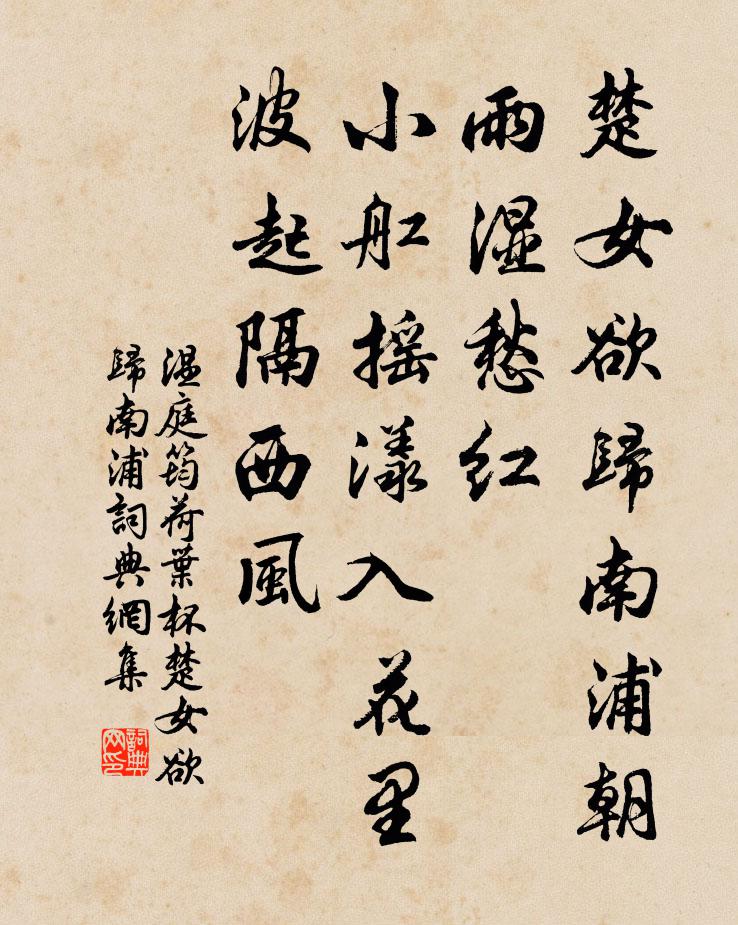 楚女欲歸南浦朝
雨濕愁紅
小舡摇漾入花里
波起隔西風
温庭筠荷葉杯楚女欲
歸南浦詞典網集
詞典網印